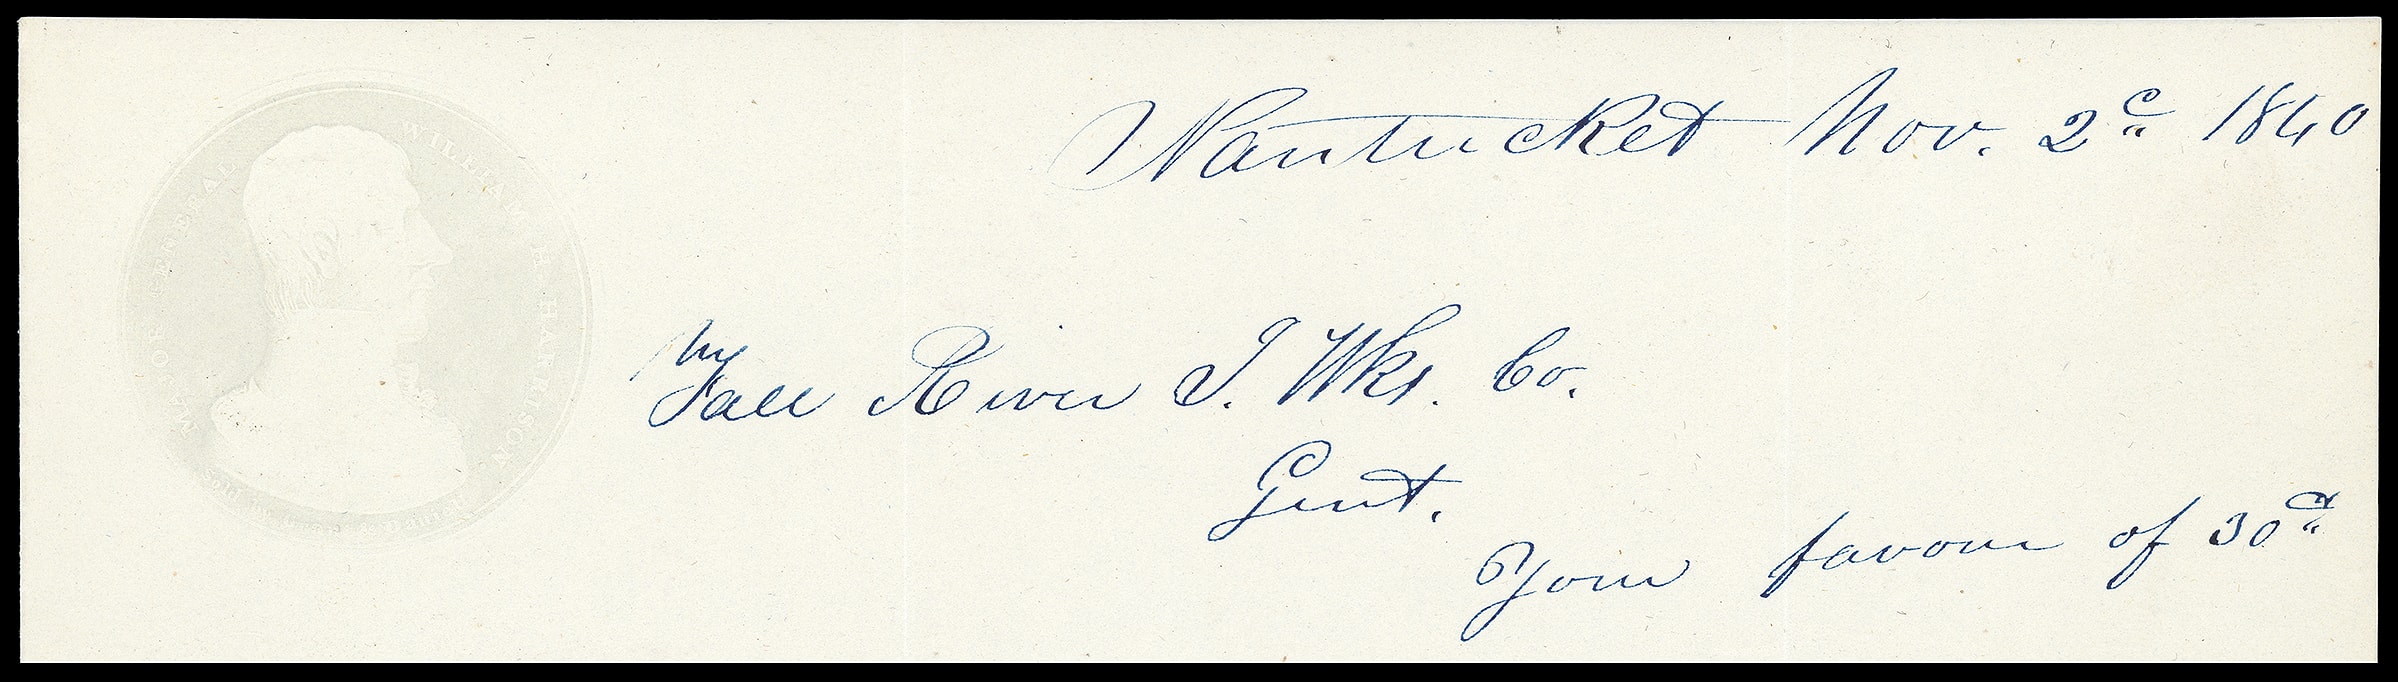 MAJOR GENERAL WILLIAM H. HARRISON
Nantucket Nov. 2d 1840
Fall River I. Wks. Co.
Gent.
Your favour of 30th